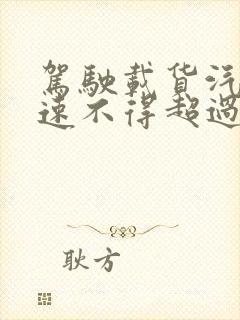 駕駛載货汽
速不得超過
耿方